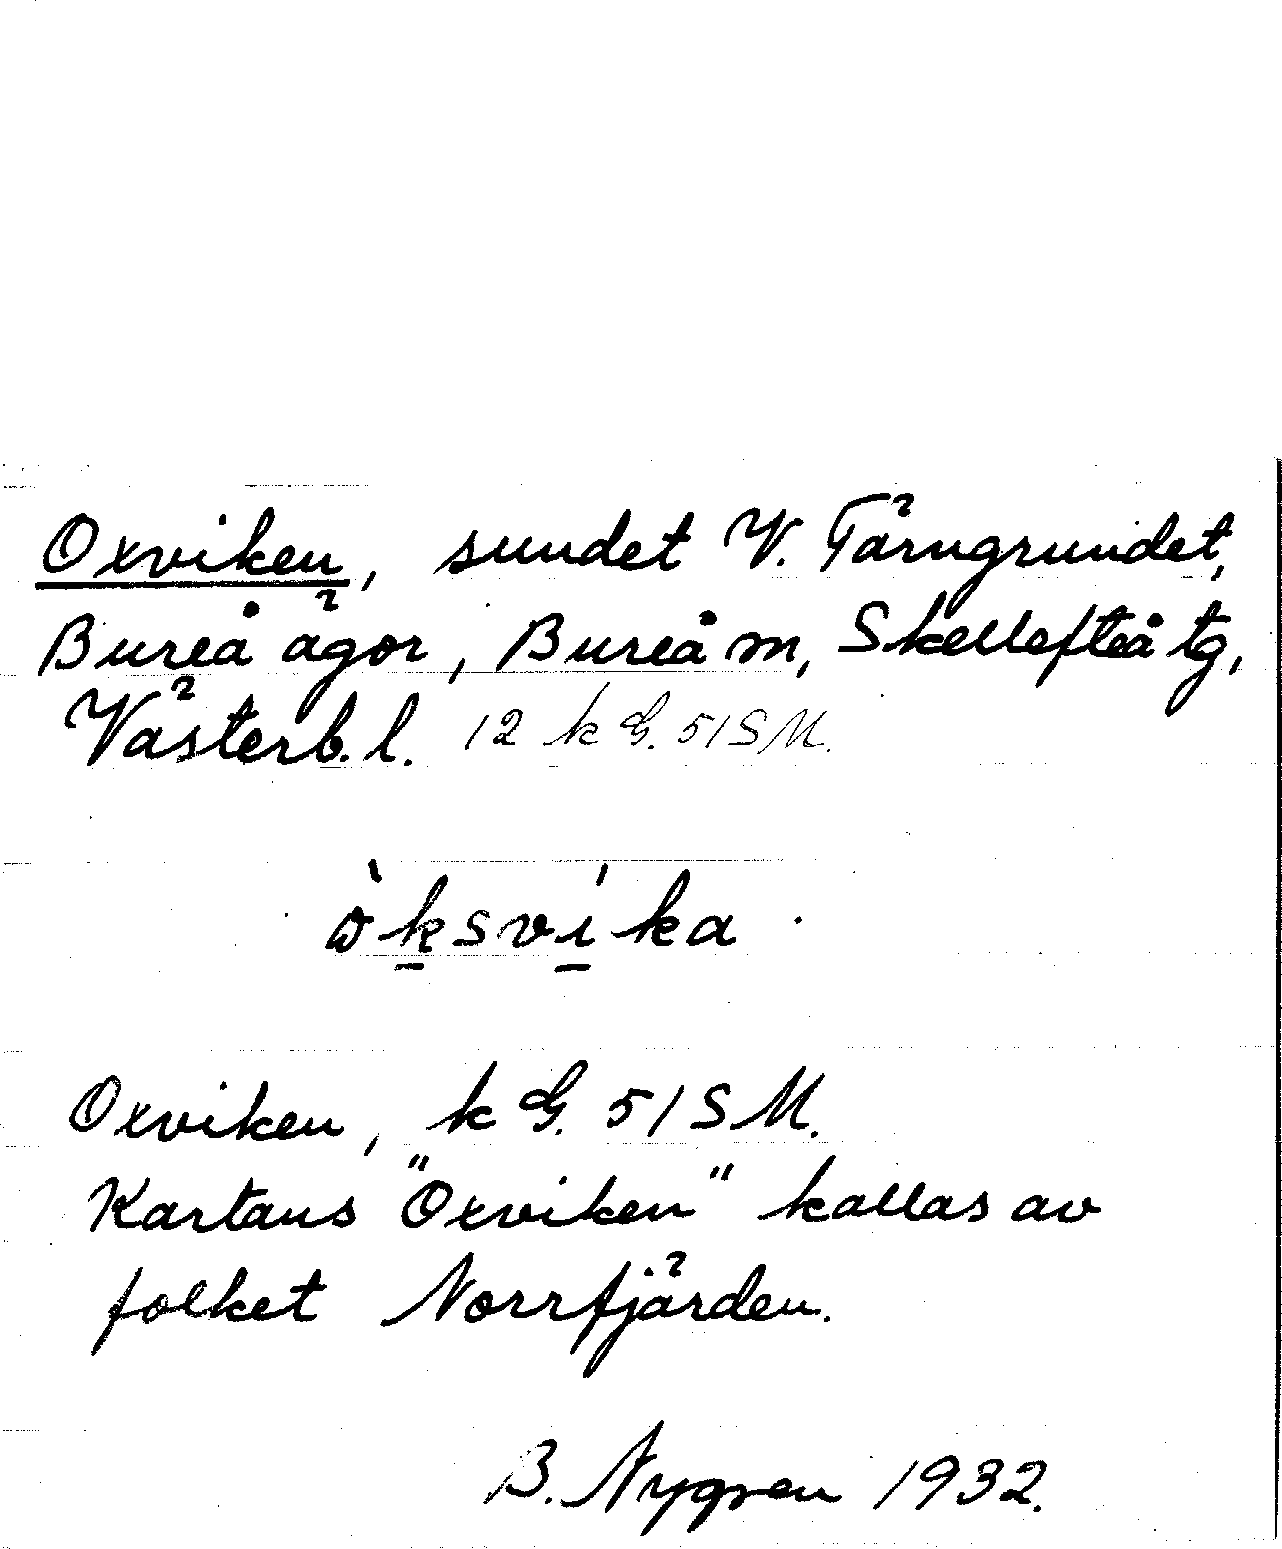 Oxviken, sundet V. Tärngrundet,
Bureå ägor, Bureå m, Skellefteå tg,
Västerb. l. 12 k G. 51 S M.
òksvíka
Oxviken, k G. 51 S M.
Kartans "Oxviken" kallas av
folket Norrfjärden.
B. Nygren 1932.